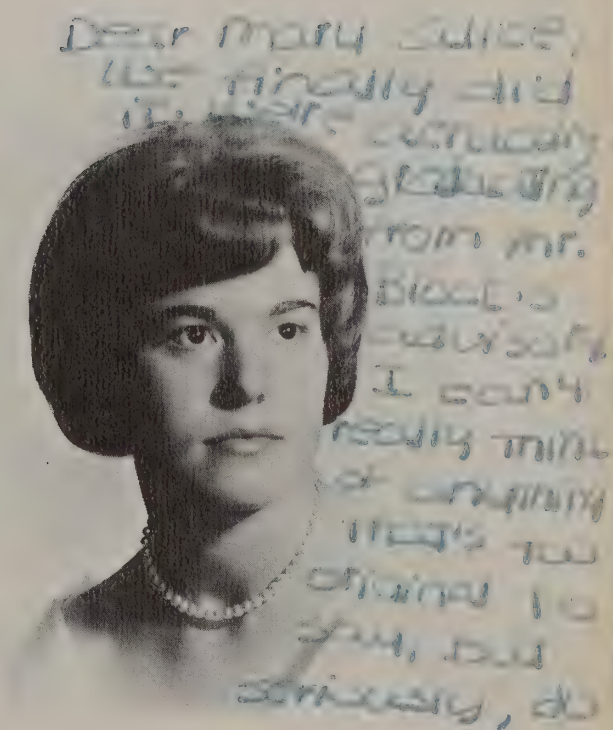 Dear Mary Alice,
We finally did
it. We're actually
graduating
from Mr.
Block's
advisory.
I can't
really think
of anything
that's too
original to
say, but
seriously, do